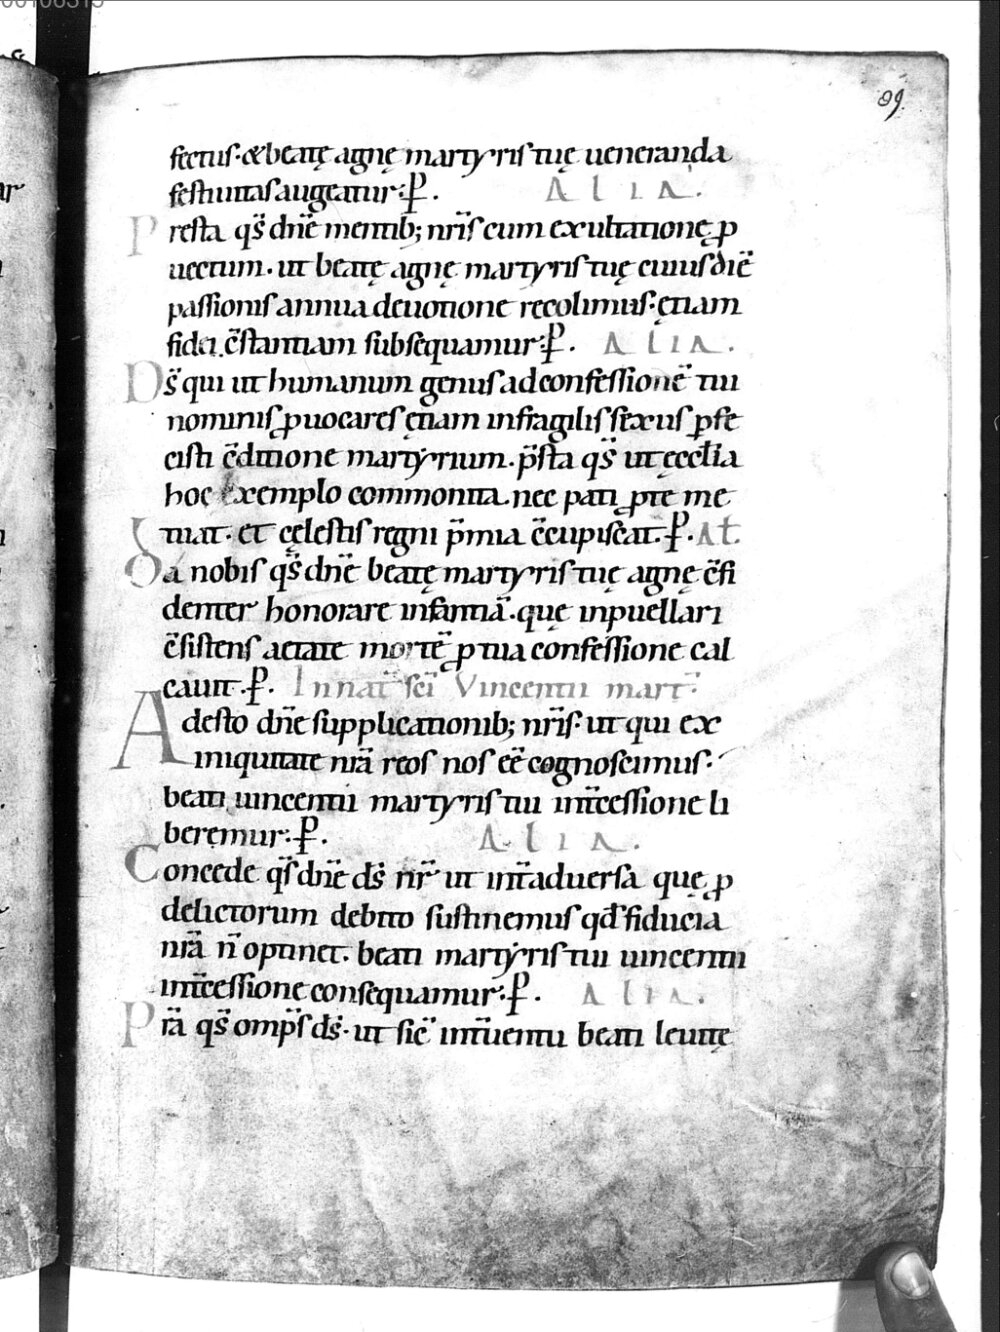 99.
fectus· & beatę agnę martyris tuę ueneranda
festiuitas augeatur:ꝑ. ALIA.
Presta qs̄ dn̄e mentib; nr̄is cum exultationę ꝓ
uectum· ut beatę agnę martyris tuę cuius diē
passionis annua deuotione recolimus· ętiam
fidei c̄stantiam subsequamur:ꝑ. ALIA.
Ds̄ qui ut humanum genus ad confessionē tui
nominis ꝓuocares ętiam in fragilis sexus ꝑfe
cisti c̄ditione martyrium· p̄sta qs̄ ut ęcclia
hoc exemplo commonita· nec pati ꝓ te me
tuat· et cęlestis regni p̄mia c̄cupiscat·ꝑ· AL.
Da nobis qs̄ dn̄e beatę martyris tuę agnę c̄fi
denter honorare infantiā· quę in puellari
c̄sistens aetate mortē ꝓ tua confessione cal
cauit·ꝑ. In nat̄ sc̄i Vincentii mart̄.
Adesto dn̄e supplicationib; nr̄is· ut qui ex
iniquitate nr̄a reos nos eē cognoscimus:
beati uincentii martyris tui int̄cessione li
beremur:ꝑ. ALIA.
Concede qs̄ dn̄e ds̄ nr̄ ut int̄ aduersa quę ꝓ
delictorum debito sustinemus qd̄ fiducia
nr̄a n̄ optinet· beati martyris tui uincentii
int̄cessione consequamur:ꝑ. ALIA.
Pr̄a qs̄ omp̄s ds̄· ut sic̄ int̄uentu beati leuitę